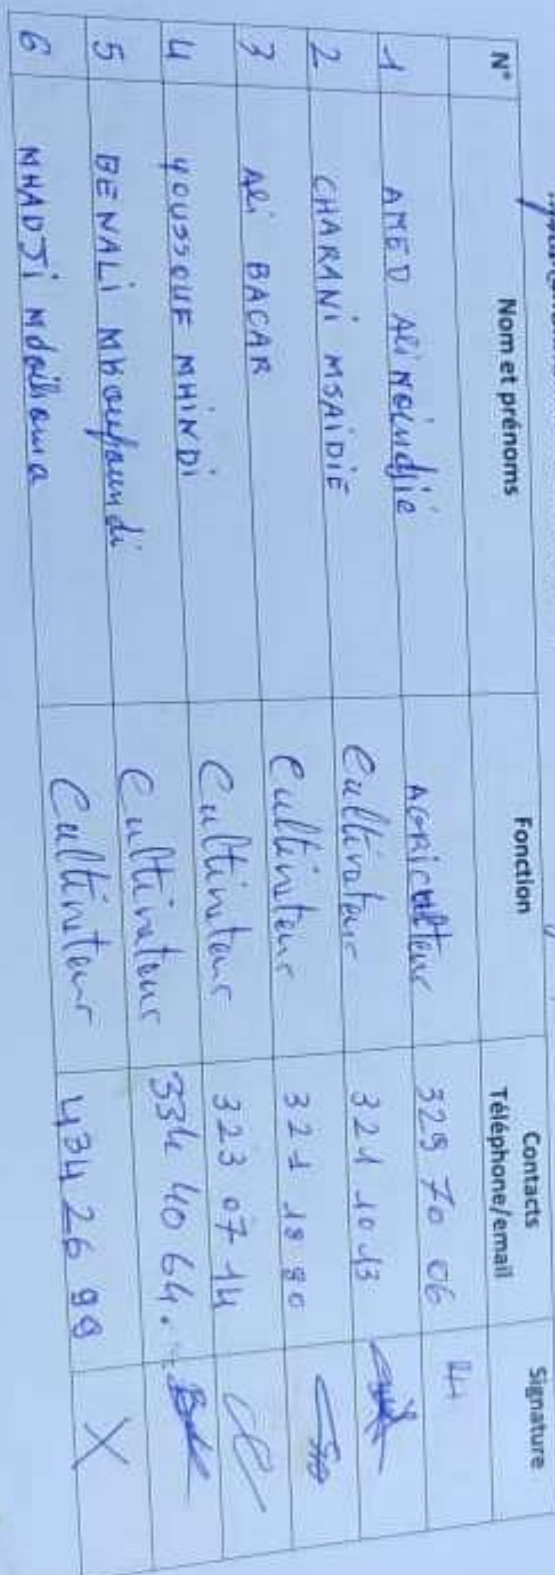 N° Nom et prénoms Fonction Contacts Téléphone/email Signature
1 AMED Ali Moindjié AGRICulteur 329 70 06
2 CHARANI MSAIDIE Cultivateur 321 10 13
3 Ali BACAR Cultivateur 321 18 80
4 YOUSSOUF MHINDI Cultivateur 323 07 14
5 BENALI Cultivateur 334 40 64.
6 MHADJI Mdoihoma Cultivateur 434 26 99 X